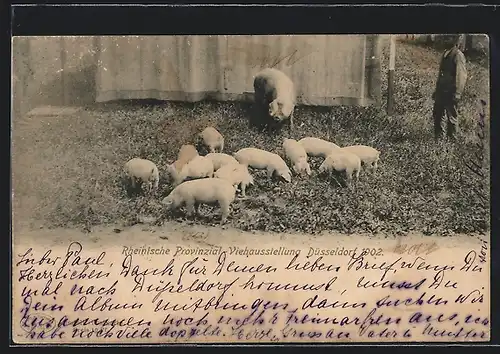 Rheinische Provinzial-Viehausstellung Düsseldorf 1902.
Lieber Paul,
Herzlichen Dank für Deinen lieben Brief wenn Du
mal nach Düsseldorf kommst, musst Du
Dein Album mitbringen, dann suchen wir
zusammen noch mehr Freimarken aus, ich
habe noch viele doppelte. Herzl. Grüsse an Vater &